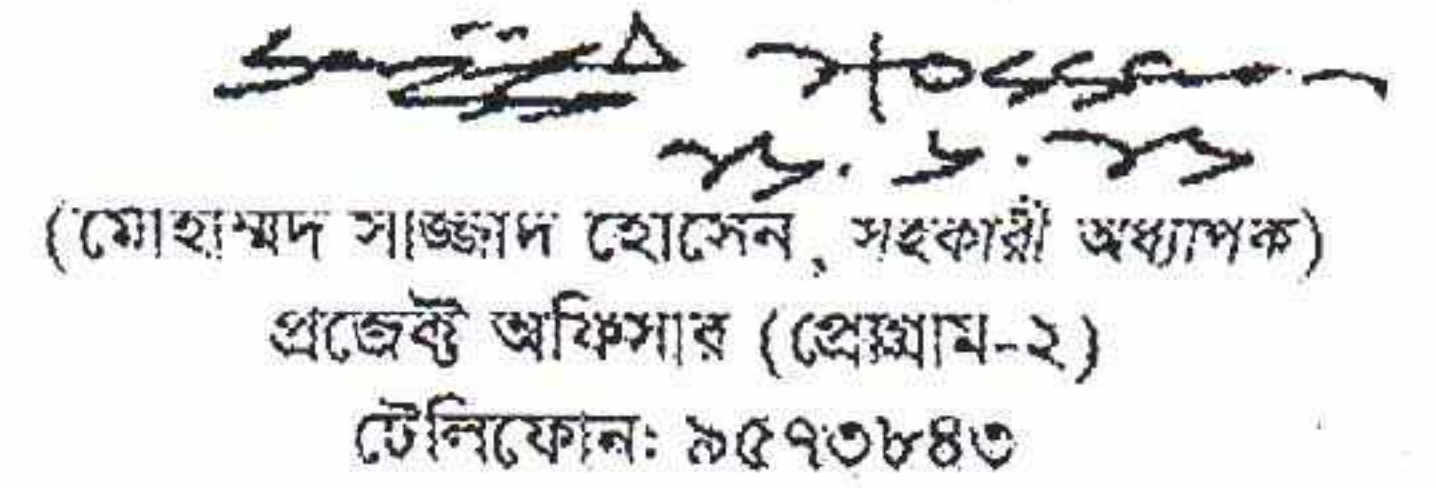 (মোহাম্মদ সাজ্জাদ হোসেন, সহকারী অধ্যাপক)
প্রজেক্ট অফিসার (প্রোগ্রাম-২)
টেলিফোন: ৯৫৭৩৮৪৩